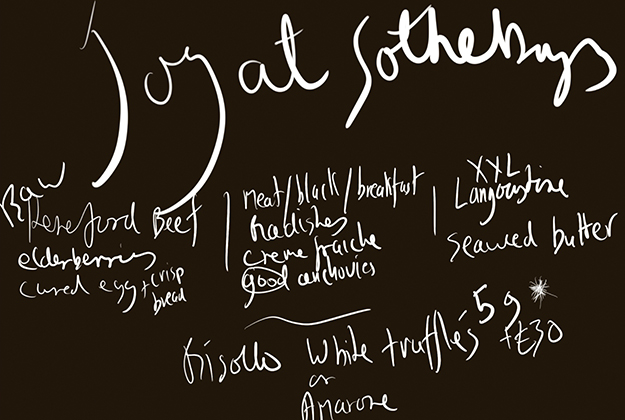 Joy at Sothebys
Raw
Hereford Beef
elderberries
cured egg + crisp
bread
Meat/black/breakfast
Radishes
creme fraiche
good anchovies
XXL
Langoustine
seaweed butter
white truffles 5g
+£30
or
Amarone